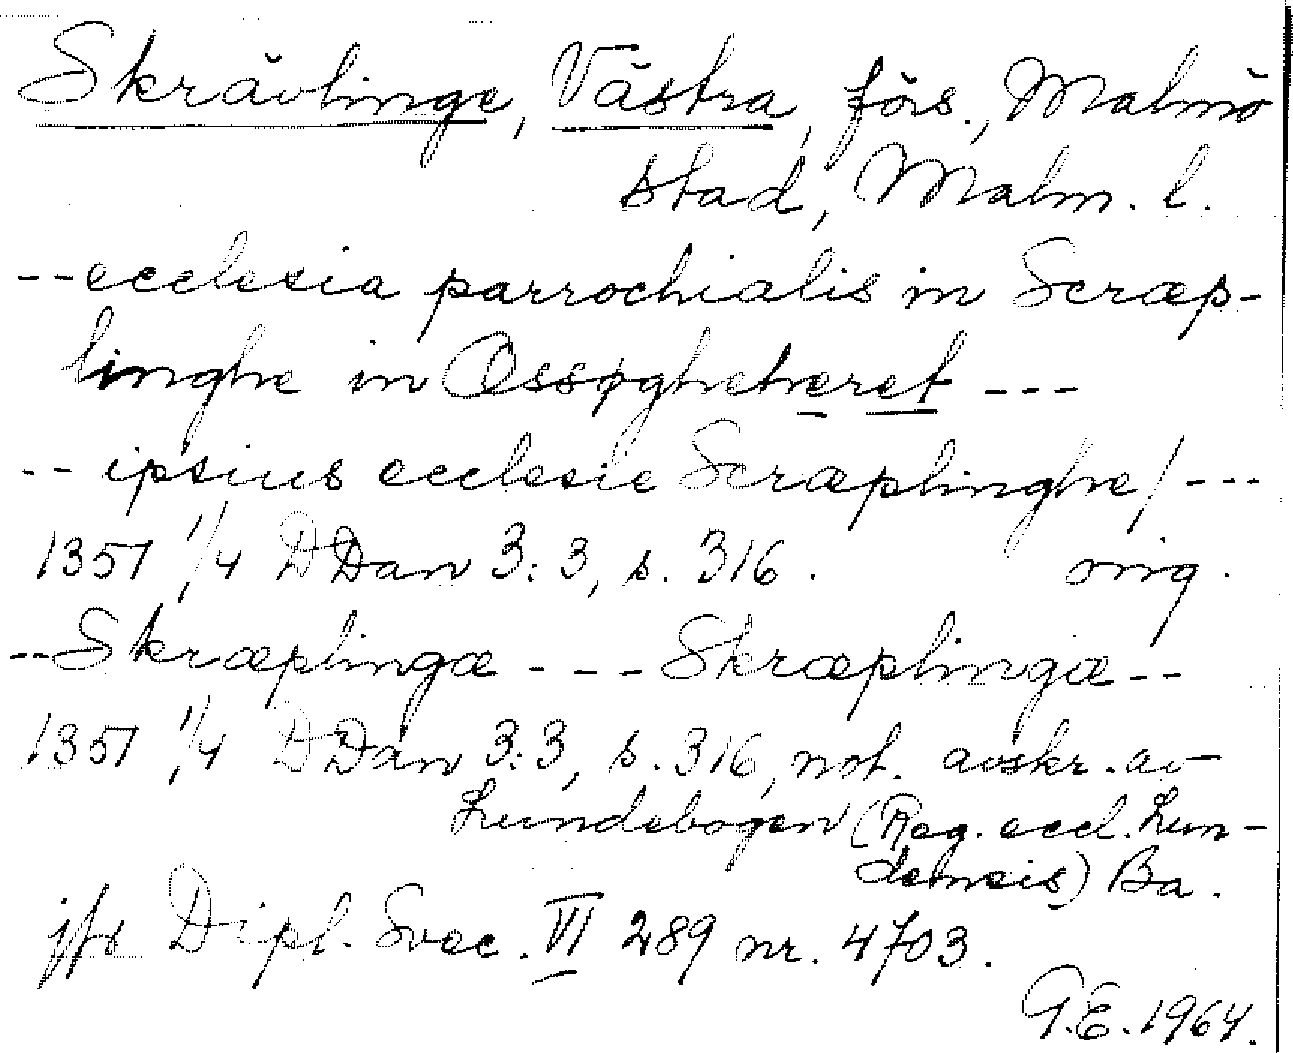 Skrävlinge, Västra, förs., Malmö
stad, Malm. l.
--ecclesia parrochialis in Scræp-
linghe in Ossøghehæret ---
-- ipsius ecclesie Scræplinghe/---
1351 1/4 DDan 3:3, s. 316. orig.
--Skræplingæ - --Skræplingæ--
1351 1/4 DDan 3:3, s. 316, not. avskr. av
Lundebogen (Reg. eccl. Lun-
densis) Ba.
jfr Dipl. Svec. VI 289 nr. 4703.
G.E. 1964.